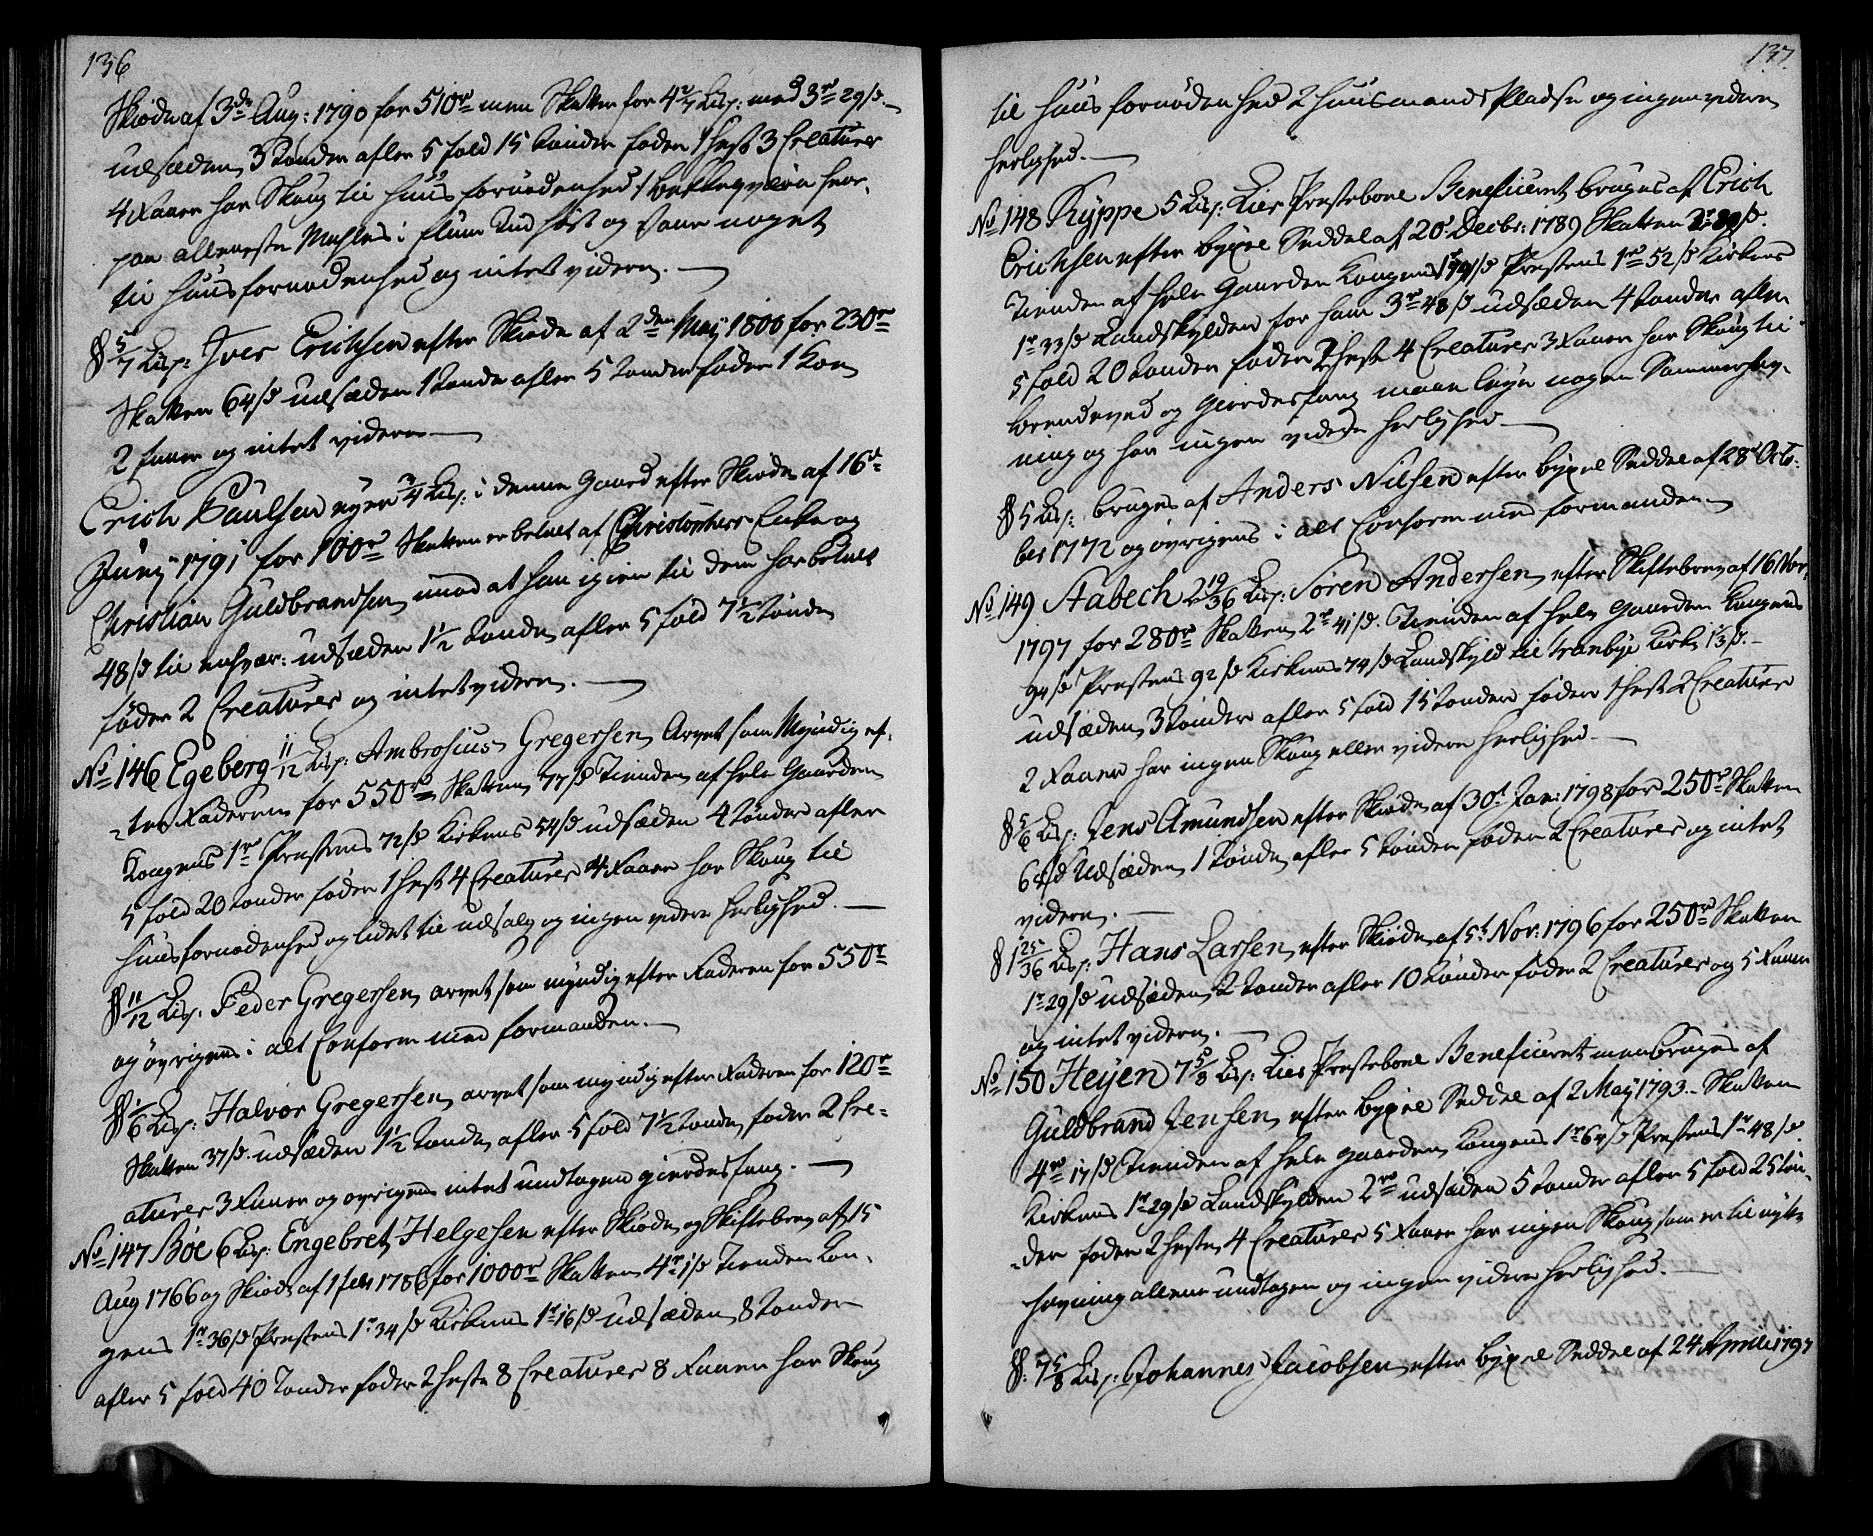 136
Skiøde af 3de Aug: 1790 for 510rd men Skatten for 4 Lisp: med 3rd 29/s
udsæden 3 tønder afler 5 fold 15 tønder føder 1 hest 3 Creaturer
4 Faarer har Skoug til huus fornødenhed 1 bekkeqværn hvor
paa alleneste Mahles i flom Tiid høst og Vaar noget
til huusfornødenhed og intet videre.
§ 5/7 Lisp: Iver Erichsen efter Skiøde af 2den May 1800 for 230rd
Skatten 64/s udsæden 1 tønde afler 5 tønder føder 1 Koe
2 faarer og intet videre
Erich Paulsen eyer 3/4 Lisp: i denne gaard efter Skiøde af 16d
Juny 1791 for 100rd Skatten er betalt af Christophers Enke og
Christian Guldbrandsen mod at han igien til dem har betalt
48/s til enhver: udsæden 1 1/2 tønde afler 5 fold 7 1/2 tønde
føder 2 Creaturer og intet videre.
No 146 Egeberg 11/12 Lisp: Ambrosius Gregersen Arvet som Myndig ef-
ter Faderen for 550rd Skatten 77/s Tienden af hele Gaarden
Kongens 1rd Prestens 72/s Kirkens 54/s udsæden 4 tønder afler
5 fold 20 tønder føder 1 hest 4 Creaturer 4 Faarer har Skoug til
huusfornødenhed og lidet til udsalg og ingen videre herlighed.
§ 11/12 Lisp: Peder Gregersen arvet som myndig efter Faderen for 550rd
og øvrigens i alt Conform med formanden.
§ 1/6 Lisp: Halvor Gregersen arvet som myndig efter Faderen for 120rd
Skatten 37/s udsæden 1 1/2 tønde afler 5 fold 7 1/2 tønde føder 2 Cre-
aturer 3 Faarer og øvrigens intet undtagen gierdesfang.
No 147 Bøe 6 Lisp: Engebret Helgesen efter Skiøde og Skiftebrev af 15
Aug 1766 og Skiøde af 1 feb 1786 for 1000rd Skatten 4rd 1/s Tienden Kon-
gens 1rd 36/s Prestens 1rd 34/s Kirkens 1rd 16/s udsæden 8 tønder
afler 5 fold 40 Tønder føder 2 heste 8 Creaturer 8 Faarer har Skoug
137.
til huus fornødenhed 2 huusmands Pladser og ingen videre
herlighed.
No 148 Kyppe 5 Lisp: Lier Prestebord Beneficeret bruges af Erich
Erichsen efter bygsel Seddel af 20d Decbr: 1789 Skatten
Tienden af hele Gaarden Kongens Prestens 1rd 52/s Kirkens
1rd 33/s Landskylden for ham 3rd 48/s udsæden 4 tønder afler
5 fold 20 tønder føder 2 heste 4 Creaturer 3 Faarer har Skoug til
brendeved og Gierdesfang maae leye nogen Sommerhav-
ning og har ingen videre herlighed
§ 5 Lisp: bruges af Anders Nilsen efter bygsel Seddel af 28d Octo-
ber 1772 og øvrigens i alt Conform med formanden
No 149 Stabech 2 19/36 Lisp: Søren Andersen efter Skiftebrev af 16 Nov:
1797 for 280rd Skatten 2rd 41/s. Tienden af hele Gaarden Kongens
94/s Prestens 92/s Kirkens 74/s Landskyld til tranbye Kirke
udsæden 3 tønder afler 5 fold 15 tønder føder 1 hest 2 Creaturer
2 Faarer har ingen Skoug eller videre herlighed
§ 5/6 Lisp: Jens Amundsen efter Skiøde af 30d Jan: 1798 for 250rd Skatten
64/s Udsæden 1 tønde afler 5 tønder føder 2 Creaturer og intet
videre.
§ 1 25/36 Lisp: Hans Larsen efter Skiøde af 5t Nov: 1796 for 250rd Skatten
1rd 29/s udsæden 2 tønder afler 10 tønder føder 2 Creaturer og 5 Faarer
og intet videre.
No 150 Heyen 7 5/8 Lisp: Lier Prestebord Beneficeret men bruges af
Guldbrand Jensen efter bygsel Seddel af 2 May 1793. Skatten
4rd 17/s Tienden af hele gaarden Kongens 1rd 64/s Prestens 1rd 48/s.
Kirkens 1rd 29/s Landskylden 2rd udsæden 5 tønder afler 5 fold 25 tøn-
der føder 2 heste 4 Creaturer 5 Faarer har ingen Skoug som er til nytte
havning allene undtagen og ingen videre herlighed.
§: 7 5/8 Lisp: Johannes Jacobsen efter bygsel Seddel af 24 April 1797